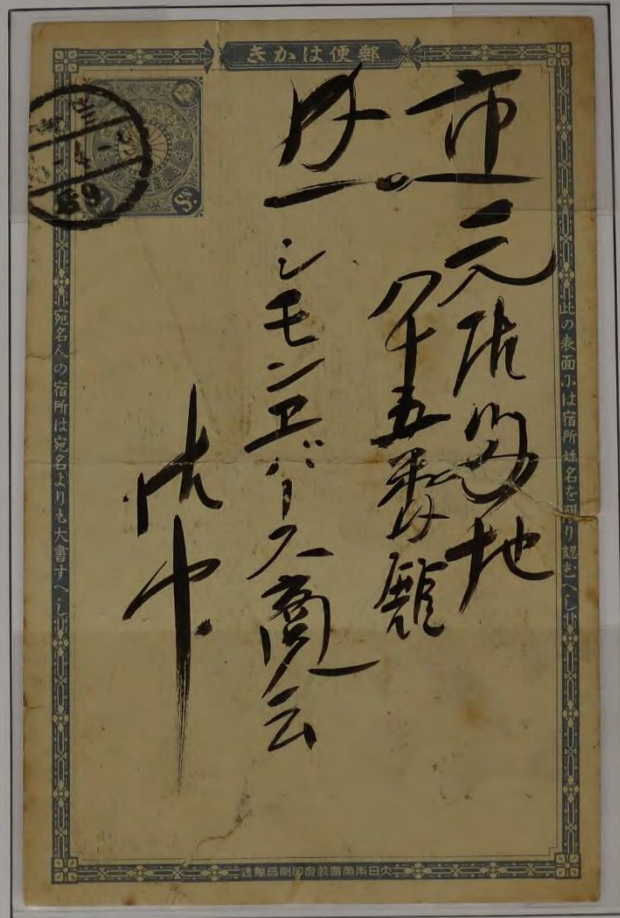 郵便はかき
此の表面には宿所姓名を限り認むへし
市元居留地
八十五番館
シモンエバース商会
御中
宛名人の宿所は宛名よりも大書すへし
大日本帝國政府印刷局製造